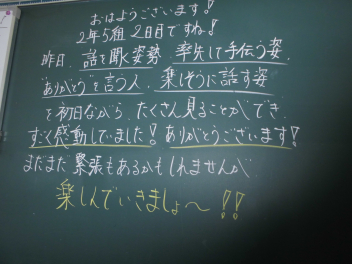 おはようございます!
2年5組 2日目ですね!
昨日、話を聞く姿勢、率先して手伝う姿、
"ありがとう"を言う人、楽しそうに話す姿
を初日ながら、たくさん見ることができ、
すごく感動していました! ありがとうございます!
まだまだ緊張もあるかもしれませんが
楽しんでいきましょ〜!!